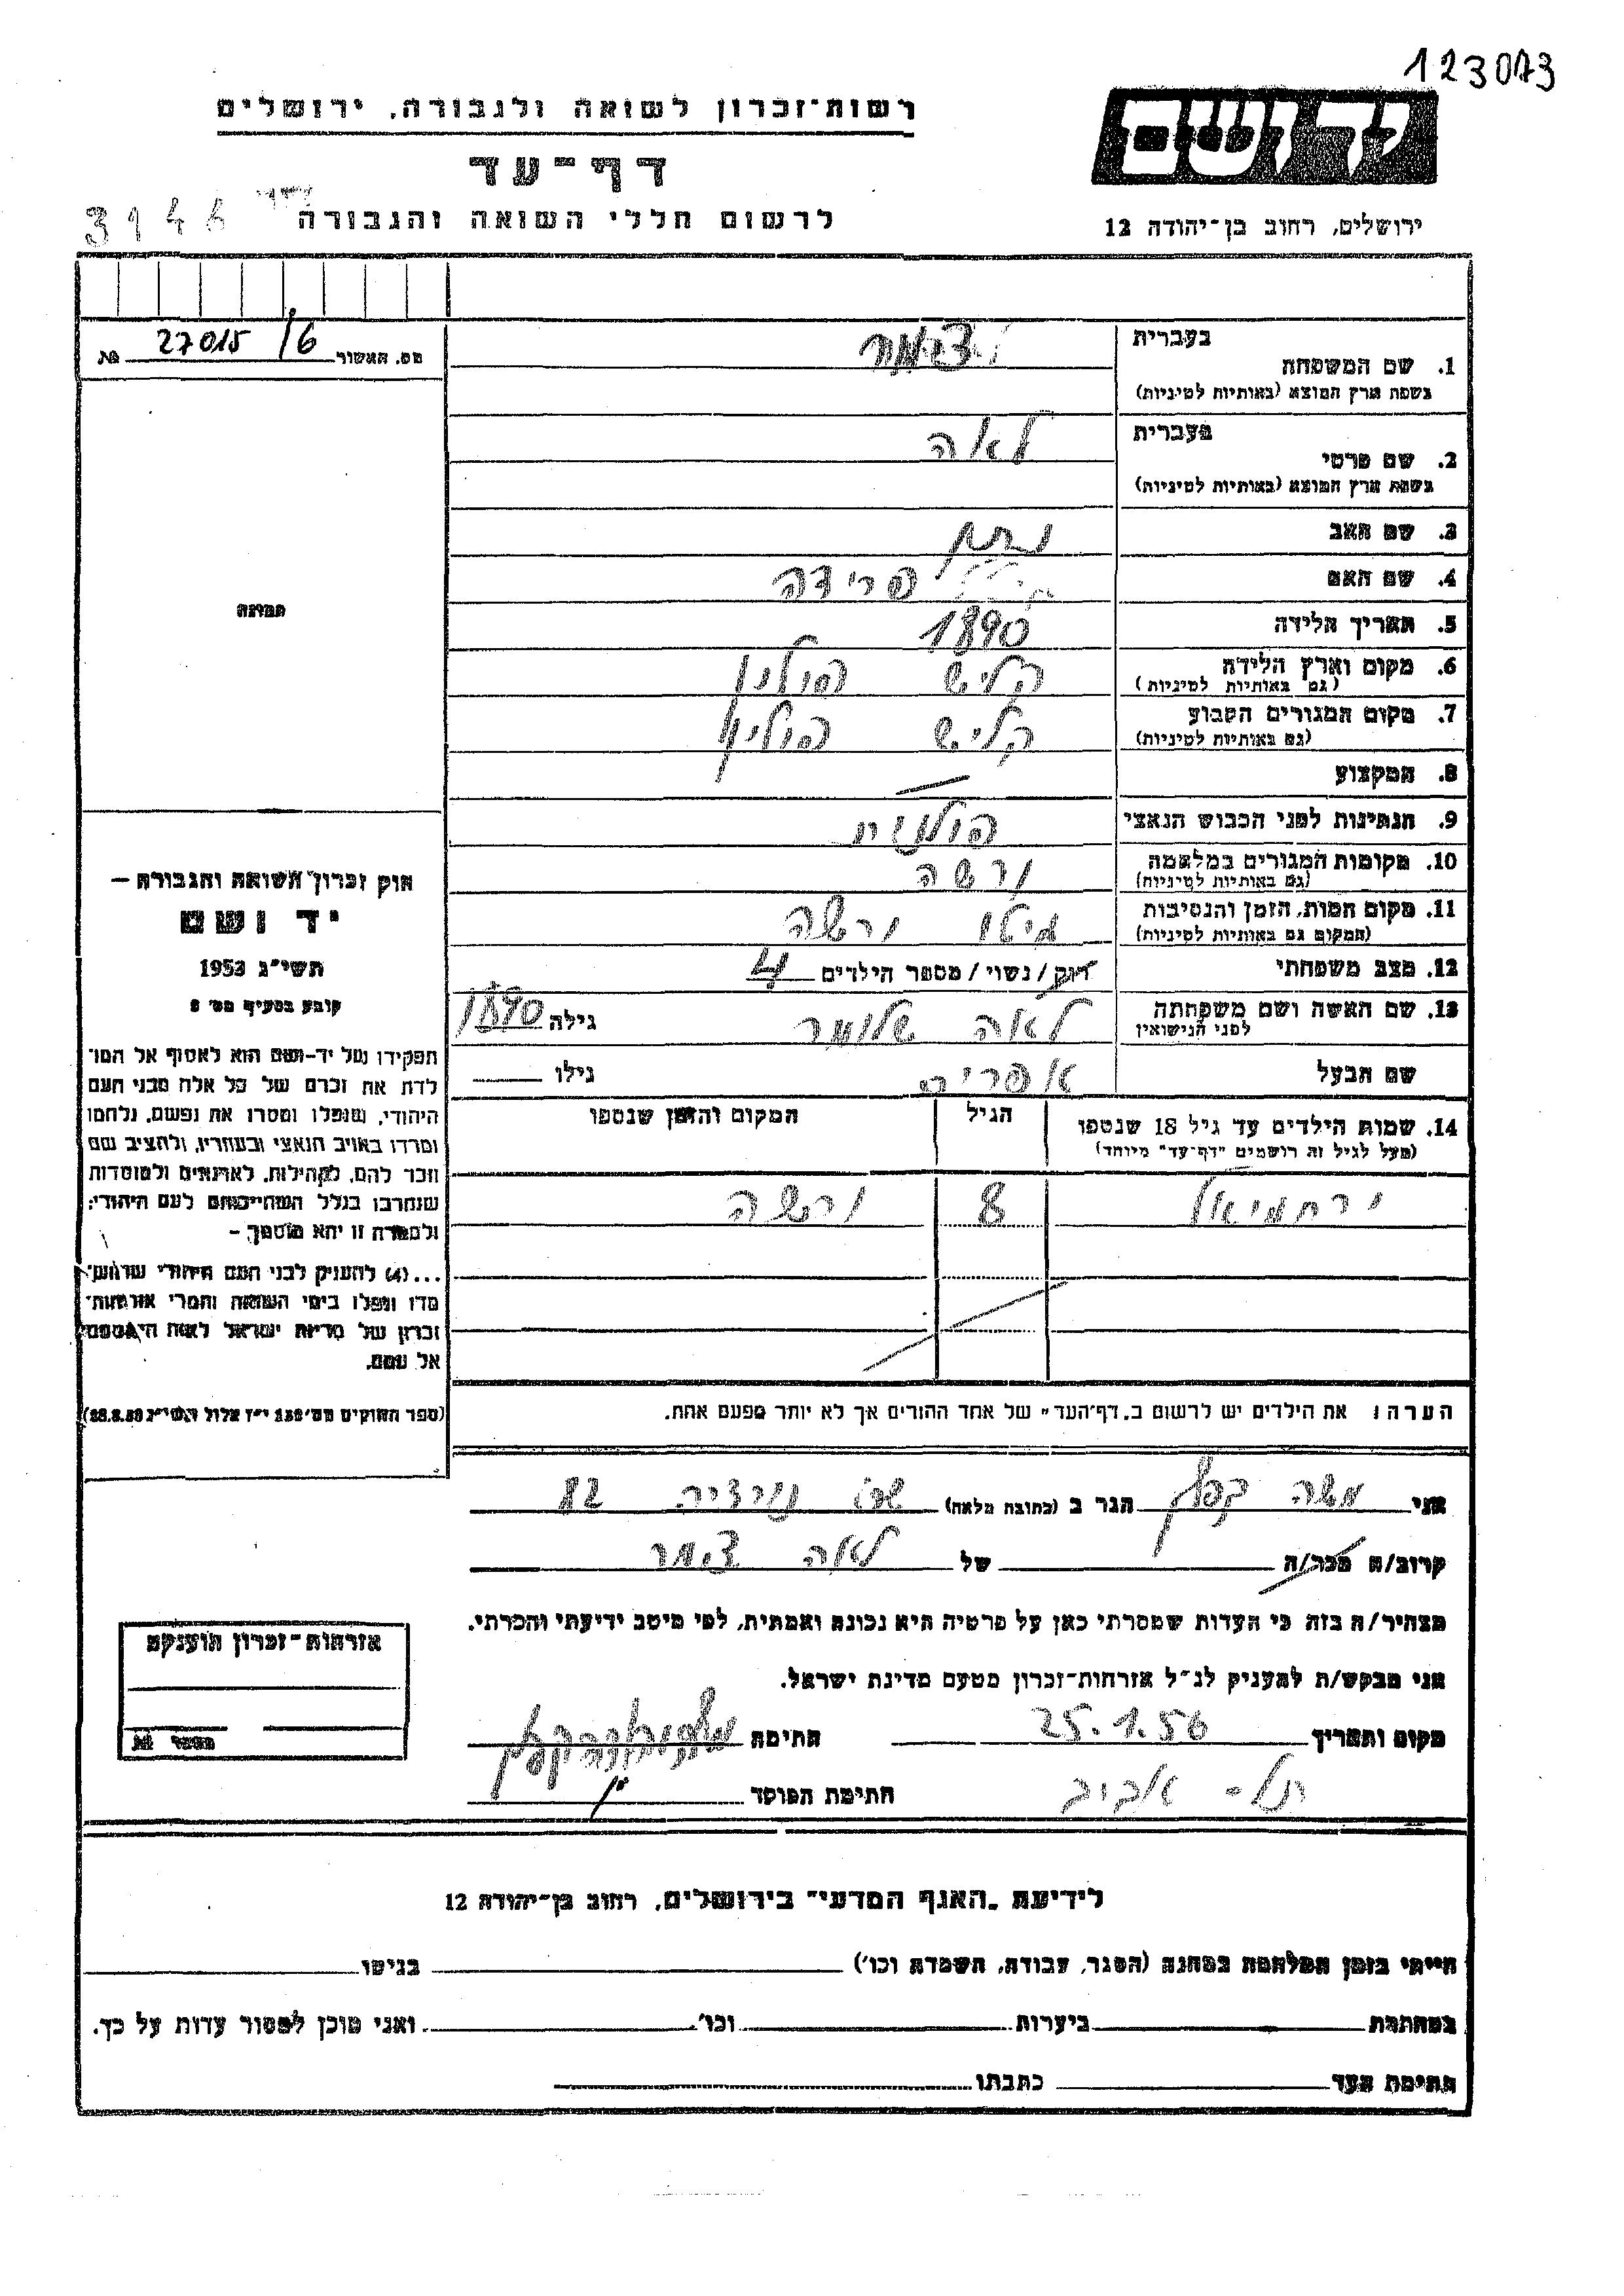 123073
יד ושם
רשות־זכרון לשואה ולגבורה, ירושלים
דף־עד
לרשום חללי השואה והגבורה
3146
ירושלים, רחוב בן־יהודה 12
מס. האשור 27015/6 №
בעברית
1. שם המשפחה
בשפת ארץ המוצא (באותיות לטיניות)
בעברית לאה
2. שם פרטי
בשפת ארץ המוצא (באותיות לטיניות)
3. שם האב נתן
4. שם האם פרידה
5. תאריך הלידה 1890
6. מקום וארץ הלידה קליש פולין
(גם באותיות לטיניות)
7. מקום המגורים הקבוע קליש פולין
(גם באותיות לטיניות)
8. המקצוע —
9. הנתינות לפני הכבוש הנאצי פולנית
10. מקומות המגורים במלחמה ורשה
(גם באותיות לטיניות)
11. מקום המות, הזמן והנסיבות גיטו ורשה
(המקום גם באותיות לטיניות)
12. מצב משפחתי רווק / נשוי / מספר הילדים 4
13. שם האשה ושם משפחתה לאה גילה 1890
לפני הנישואין
שם הבעל אפרים גילו
14. שמות הילדים עד גיל 18 שנספו הגיל המקום והזמן שנספו
(מעל לגיל זה רושמים "דף־עד" מיוחד)
ירחמיאל 8 ורשה
הערה: את הילדים יש לרשום ב„דף־העד" של אחד ההורים אך לא יותר מפעם אחת.
תמונה
חוק זכרון השואה והגבורה —
יד ושם
תשי"ג 1953
קובע בסעיף מס' 2
תפקידו של יד-ושם הוא לאסוף אל המו־
לדת את זכרם של כל אלה מבני העם
היהודי, שנפלו ומסרו את נפשם, נלחמו
ומרדו באויב הנאצי ובעוזריו, ולהציב שם
וזכר להם, לקהילות, לארגונים ולמוסדות
שנחרבו בגלל השתייכותם לעם היהודי;
ולמטרה זו יהא מוסמך —
...(4) להעניק לבני העם היהודי שהוש־
מדו ונפלו בימי השואה והמרי אזרחות־
זכרון של מדינת ישראל לאות היאספם
אל עמם.
(ספר החוקים מס' 132 י"ז אלול תשי"ג 28.8.53)
אני משה קפלן הגר ב (כתובת מלאה) 82
קרוב/ה מכר/ה של לאה
מצהיר/ה בזה כי העדות שמסרתי כאן על פרטיה היא נכונה ואמתית, לפי מיטב ידיעתי והכרתי.
אני מבקש/ת להעניק לנ"ל אזרחות־זכרון מטעם מדינת ישראל.
מקום ותאריך 25.1.56 חתימה
תל-אביב חתימת הפוקד
אזרחות־זכרון הוענקה
מספר №
לידיעת „האגף המדעי" בירושלים, רחוב בן־יהודה 12
הייתי בזמן המלחמה במחנה (הסגר, עבודה, השמדה וכו') בגיטו
במחתרת ביערות וכו' ואני מוכן למסור עדות על כך.
חתימת העד כתבתו